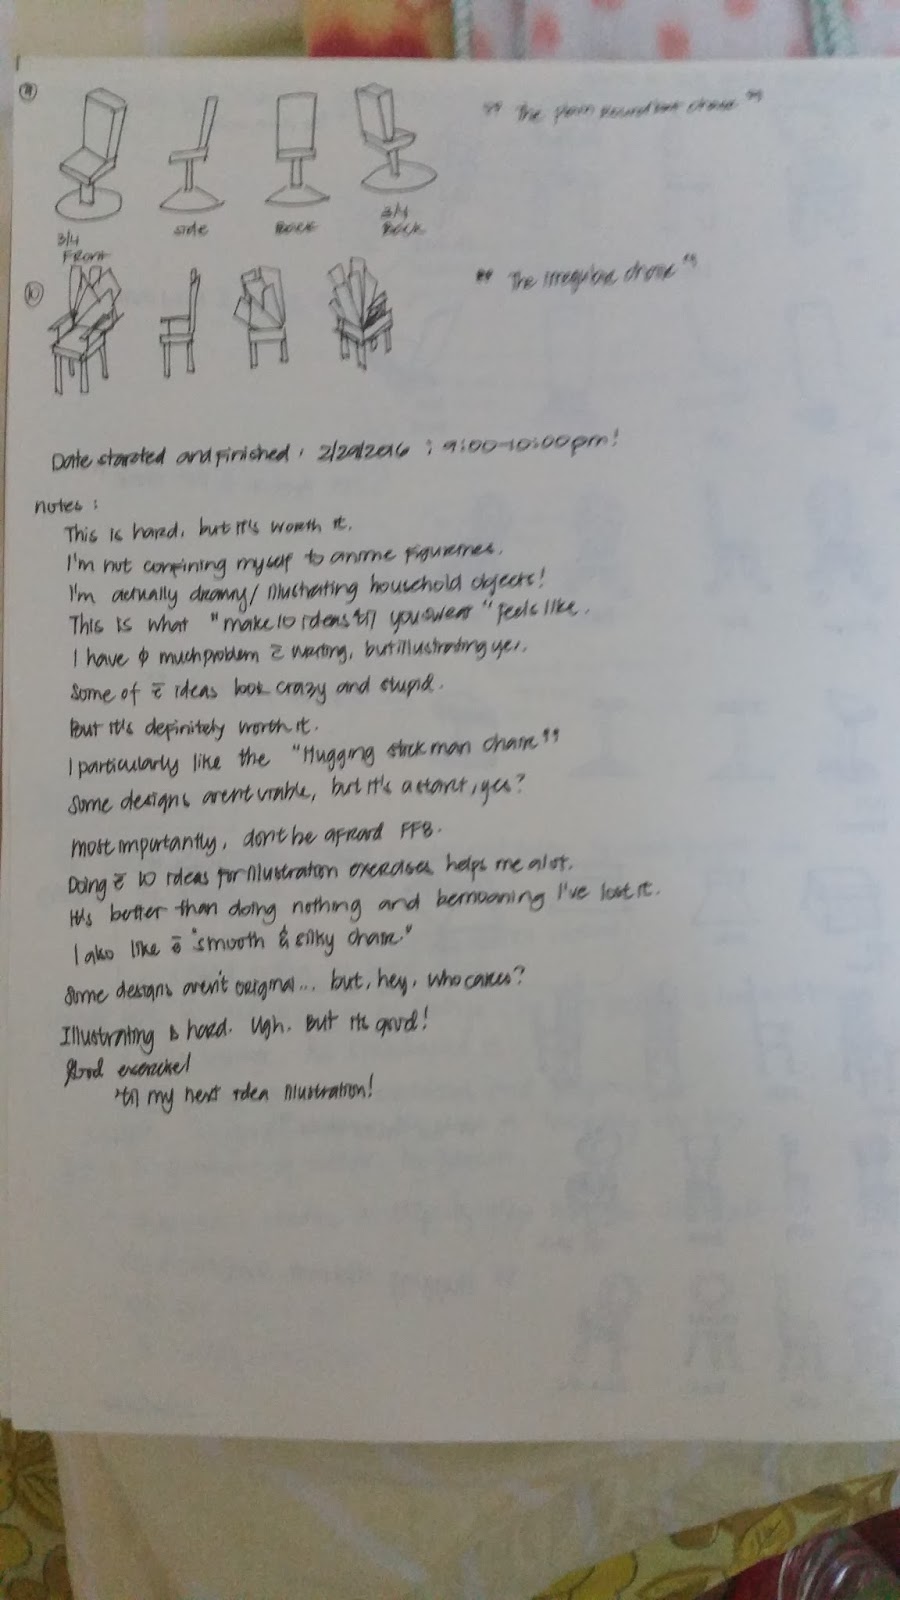 9
"The plain round bar chair"
3/4 Front
side
Back
3/4 Back
10
"The irregular chair"
Date started and finished : 2/29/2016 ; 9:00-10:00pm!
notes :
This is hard, but it's worth it.
I'm not confining myself to anime figurines.
I'm actually drawing/illustrating household objects!
This is what "make 10 ideas til you swear" feels like.
I have ϕ much problem c̄ writing, but illustrating yes.
Some of c̄ ideas look crazy and stupid.
But it's definitely worth it.
I particularly like the "Hugging stickman chair"
Some designs arent viable, but it's a start, yes?
most importantly, dont be afraid FFB.
Doing c̄ 10 ideas for illustration exercises helps me alot.
It's better than doing nothing and bemoaning I've lost it.
I also like c̄ "smooth & silky chair."
Some designs aren't original... but, hey, who cares?
Illustrating is hard. Ugh. But its good!
Good exercise!
'til my next idea illustration!